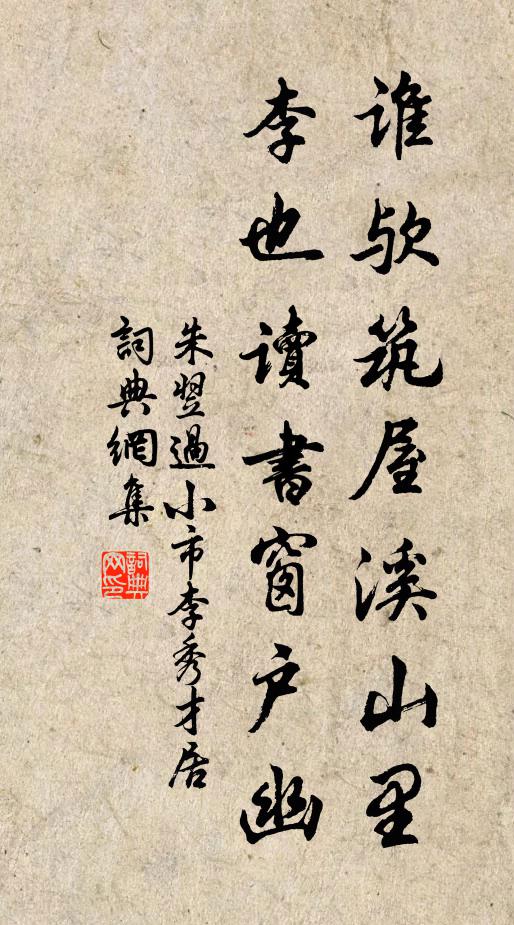 谁欤筑屋溪山里
李也读書窗户幽
朱翌過小市李秀才居
詞典網集
詞典网印